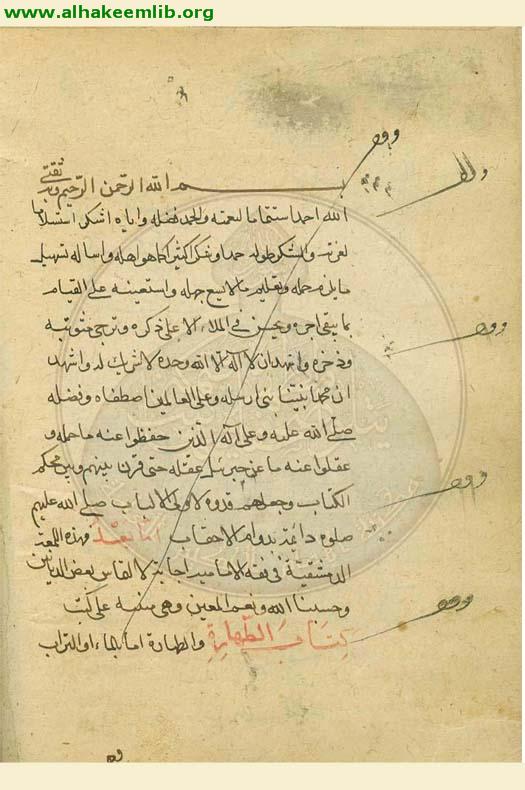 www.alhakeemlib.org
بسم الله الرحمن الرحيم وبه ثقتي
الله احمد استتماما لنعمته والحمد فضله واياه اشكر استسلاما
لعزته والشكر طوله حمدا وشكرا كثيرا كما هو اهله واساله تسهيل
ما يلزم حمله وتعليم ما لا يسع جهله واستعينه على القيام
بما يبقى اجره ويحسن في الملاء الاعلى ذكره وترجى مثوبته
وذخره واشهد ان لا اله الا الله وحده لا شريك له واشهد
ان محمدا نبينا نبي ارسله وعلى العالمين اصطفاه وفضله
صلى الله عليه وعلى آله الذين حفظوا عنه ما حمله و
عقلوا عنه ما عن جبرئيل عقله حتى قرن بينهم وبين محكم
الكتاب وجعلهم قدوة لاولى الالباب صلى الله عليهم
صلوة دائمة بدوام الاحقاب اما بعد فهذه اللمعة
الدمشقية في فقه الامامية اجابة لالتماس بعض الديانين
وحسبنا الله ونعم المعين وهي مبنية على كتب
كتاب الطهارة والطهارة اما بالماء او التراب